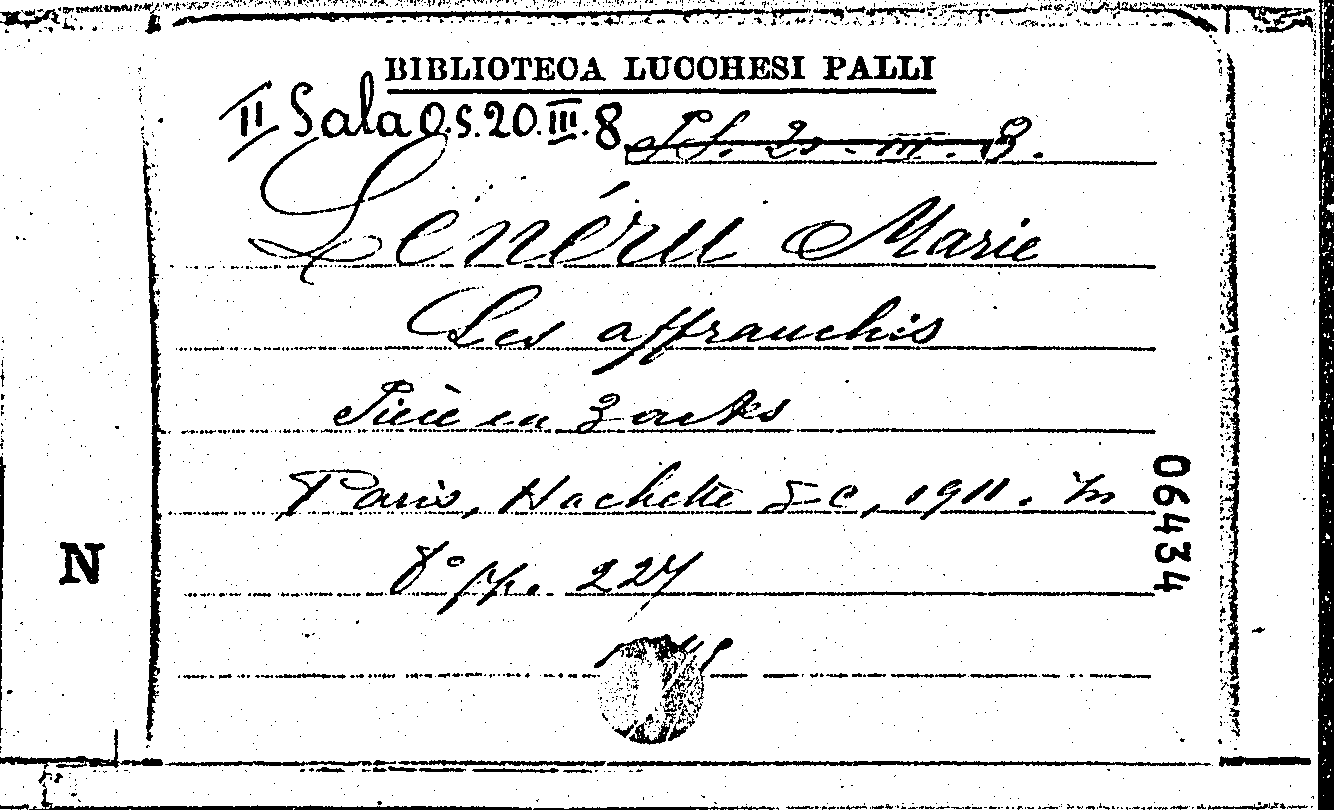 BIBLIOTECA LUCCHESI PALLI
II Sala O.S.20.III.8
20 - III. 8.
Lenéru Marie
Les affranchis
Pièce en 3 actes
Paris, Hachette & C, 1911. In
8° pp. 227
06434
N